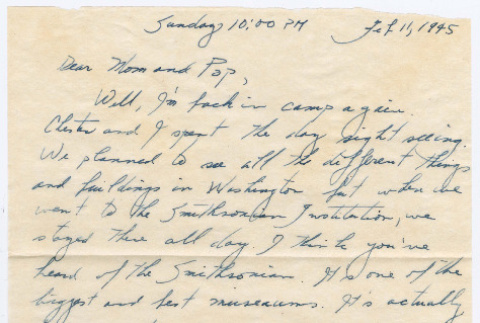 Sunday 10:00 PM Feb. 11, 1945
Dear Mom and Pop,
Well, I'm back in camp again.
Chester and I spent the day sight seeing.
We planned to see all the different things
and buildings in Washington but when we
went to the Smithsonian Institution, we
stayed there all day. I think you've
heard of the Smithsonian. It's one of the
biggest and best museums. It's actually